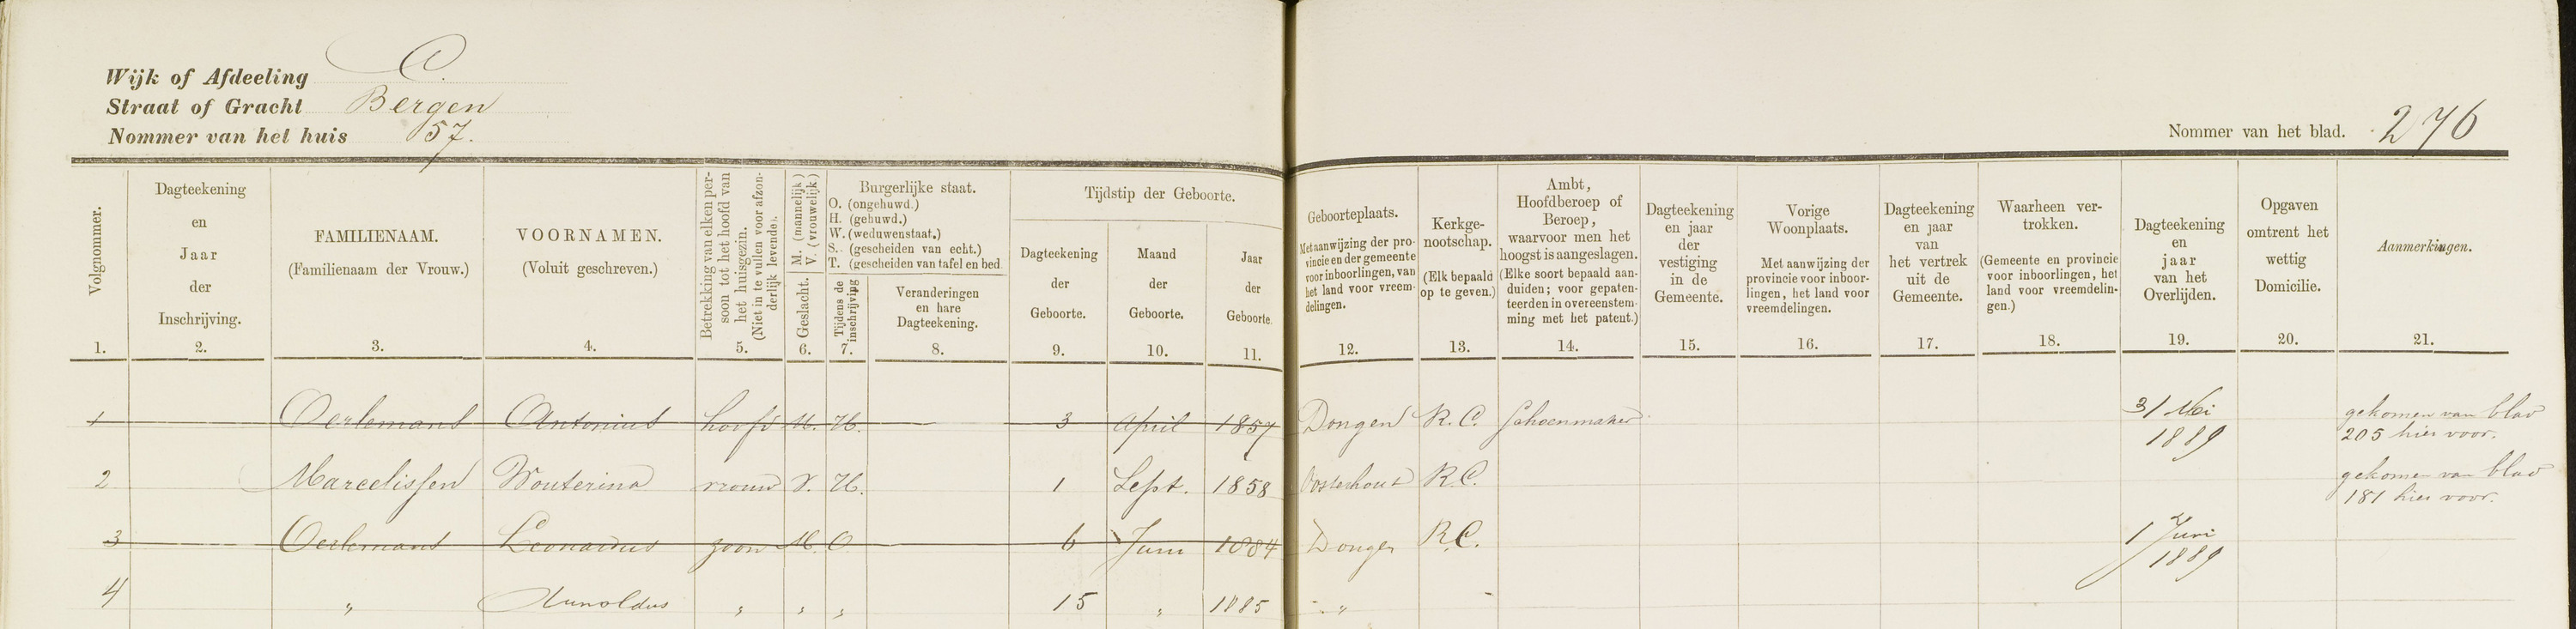 Wijk of Afdeeling C.
Straat of Gracht Bergen
Nommer van het huis 57.
Nommer van het blad. 276
Volgnommer.
Dagteekening
en
Jaar
der
Inschrijving.
FAMILIENAAM.
(Familienaam der Vrouw.)
VOORNAMEN.
(Voluit geschreven.)
Betrekking van elken per-
soon tot het hoofd van
het huisgezin.
(Niet in te vullen voor afzon-
derlijk levende).
Geslacht. M. (mannelijk)
V. (vrouwelijk)
Burgerlijke staat.
O. (ongehuwd.)
H. (gehuwd.)
W. (weduwenstaat.)
S. (gescheiden van echt.)
T. (gescheiden van tafel en bed.
Tijdens de
inschrijving
Veranderingen
en hare
Dagteekening.
Tijdstip der Geboorte.
Dagteekening
der
Geboorte.
Maand
der
Geboorte.
Jaar
der
Geboorte.
Geboorteplaats.
Met aanwijzing der pro-
vincie en der gemeente
voor inboorlingen, van
het land voor vreem-
delingen.
Kerkge-
nootschap.
(Elk bepaald
op te geven.)
Ambt,
Hoofdberoep of
Beroep,
waarvoor men het
hoogst is aangeslagen.
(Elke soort bepaald aan-
duiden; voor gepaten-
teerden in overeenstem-
ming met het patent.)
Dagteekening
en jaar
der
vestiging
in de
Gemeente.
Vorige
Woonplaats.
Met aanwijzing der
provincie voor inboor-
lingen, het land voor
vreemdelingen.
Dagteekening
en jaar
van
het vertrek
uit de
Gemeente.
Waarheen ver-
trokken.
(Gemeente en provincie
voor inboorlingen, het
land voor vreemdelin-
gen.)
Dagteekening
en
jaar
van het
Overlijden.
Opgaven
omtrent het
wettig
Domicilie.
Aanmerkingen.
1. 2. 3. 4. 5. 6. 7. 8. 9. 10. 11. 12. 13. 14. 15. 16. 17. 18. 19. 20. 21.
1 Oerlemans Antonius hoofd M. H. — 3 April 1857 Dongen R.C. Schoenmaker 31 Mei 1889 gekomen van blad
205 hier voor.
2 Marcelissen Wouterina vrouw V. H. 1 Sept. 1858 Oosterhout R.C. gekomen van blad
181 hier voor.
3 Oerlemans Leonardus zoon M. O. 6 Juni 1884 Dongen R.C. 1 Juni 1889
4 " Arnoldus " " " 15 " 1885 "